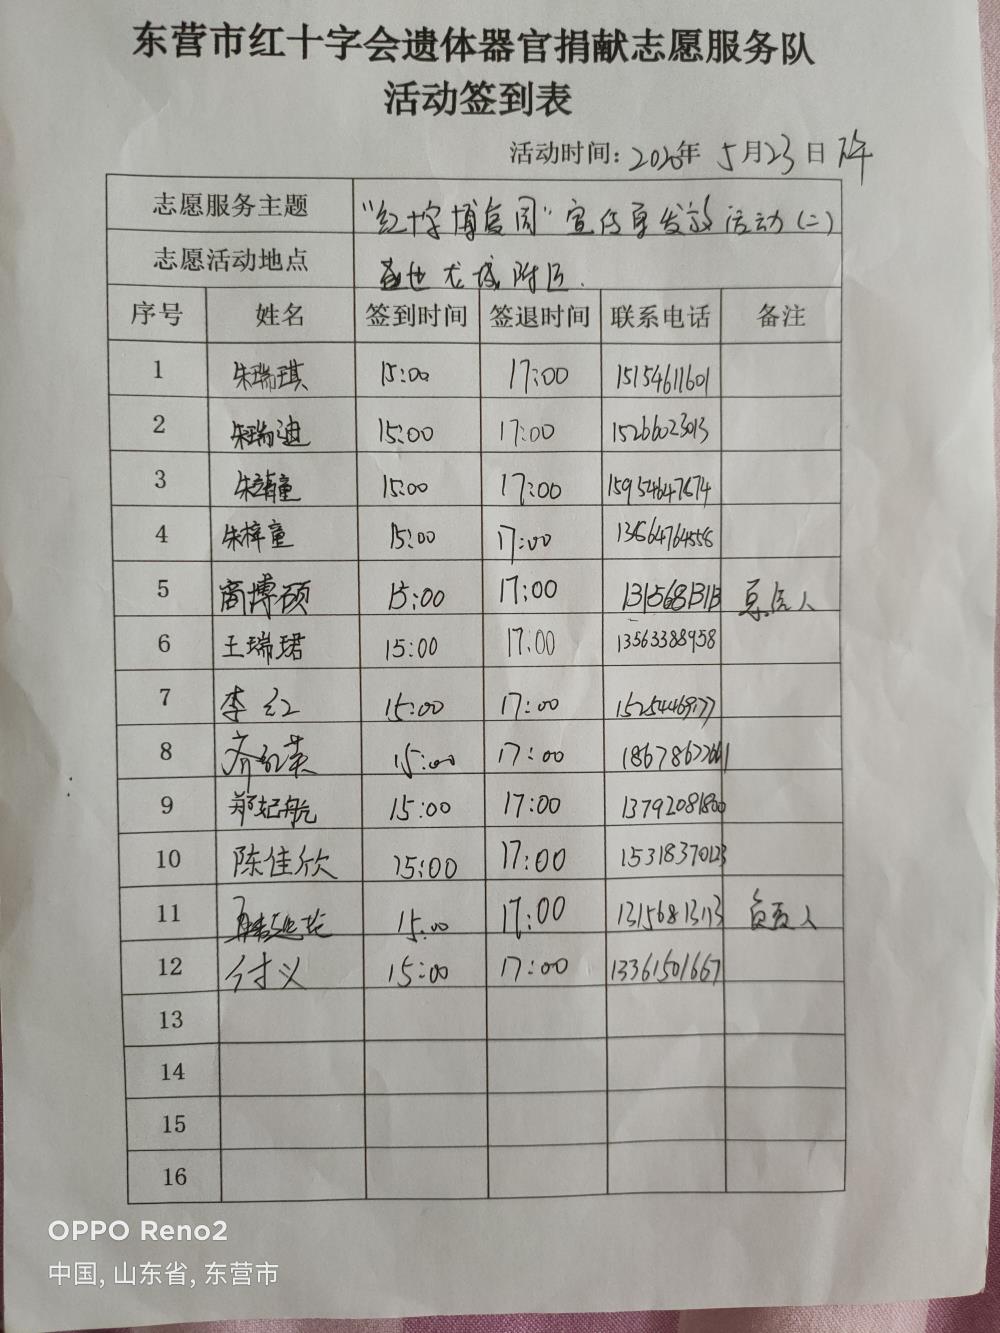 东营市红十字会遗体器官捐献志愿服务队
活动签到表
活动时间: 2020年 5月23日 下午
志愿服务主题 “红十字博爱周”宣传单发放活动(二)
志愿活动地点 龙城附近.
序号 姓名 签到时间 签退时间 联系电话 备注
1 朱瑞琪 15:00 17:00 15154611601
2 朱瑞迪 15:00 17:00 15266023013
3 15:00 17:00 15954647674
4 朱梓童 15:00 17:00
5 商博硕 15:00 17:00 13156813113 负责人
6 王瑞珺 15:00 17:00 13563388958
7 李红 15:00 17:00 15254469177
8 齐红英 15:00 17:00
9 郑妃航 15:00 17:00 13792081800
10 陈佳欣 15:00 17:00 15318370123
11 15:00 17:00 13156813113 负责人
12 付义 15:00 17:00 13361501667
13
14
15
16
OPPO Reno2
中国, 山东省, 东营市